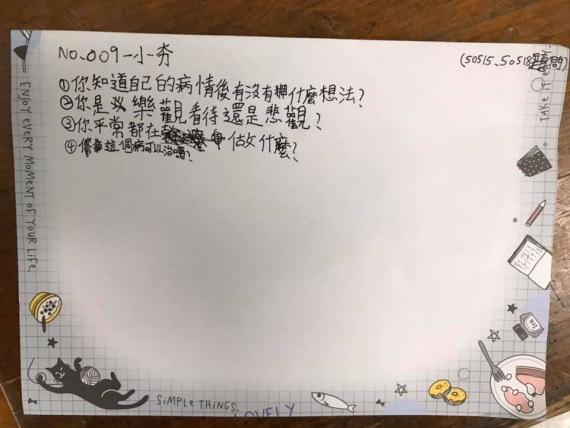 No.009-小夯
(50515、50518
①你知道自己的病情後有沒有什麼想法?
②你是樂觀看待還是悲觀?
③你平常都在做什麼?
④這個病可以治嗎?
TAKE IT EASY.
ENJOY EVERY MOMENT OF YOUR LIFE.
Ink
SIMPLE THINGS.
LOVELY